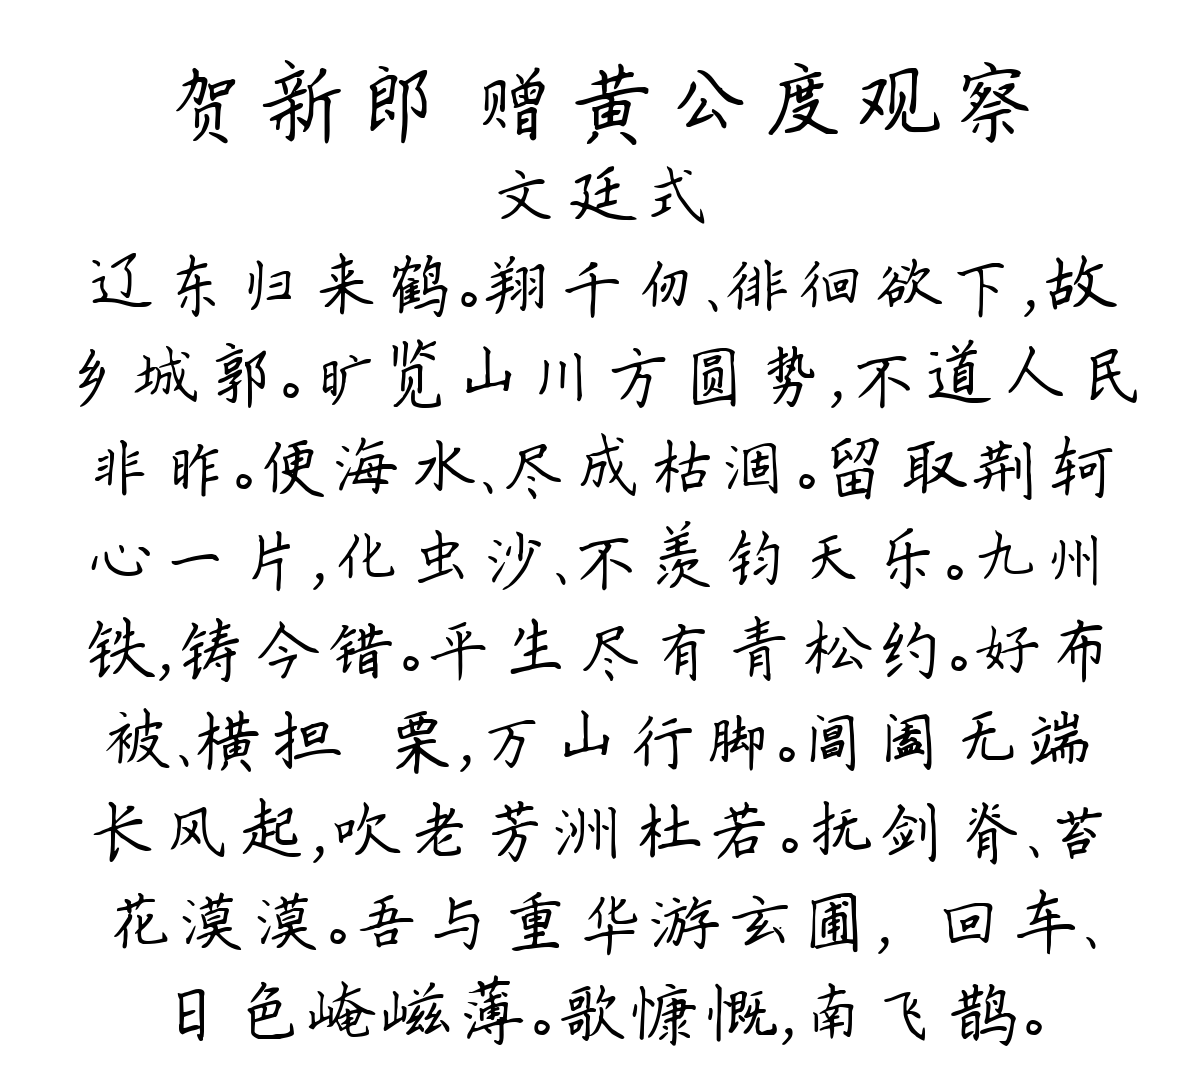 贺新郎 赠黄公度观察
文廷式
辽东归来鹤。翔千仞、徘徊欲下,故
乡城郭。旷览山川方圆势,不道人民
非昨。便海水、尽成枯涸。留取荆轲
心一片,化虫沙、不羡钧天乐。九州
铁,铸今错。平生尽有青松约。好布
被、横担 栗,万山行脚。阊阖无端
长风起,吹老芳洲杜若。抚剑脊、苔
花漠漠。吾与重华游玄圃,回车、
日色崦嵫薄。歌慷慨,南飞鹊。